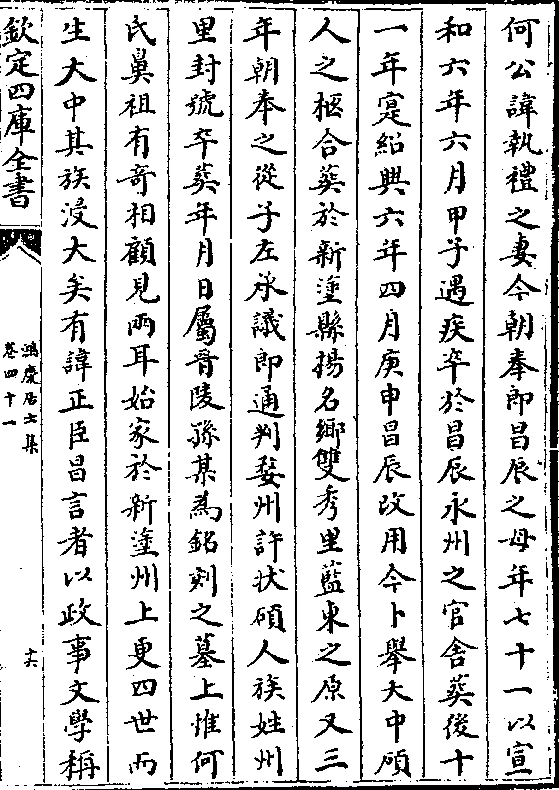 何公諱執禮之妻今朝奉郎昌辰之母年七十一以宣
和六年六月甲子遇疾卒於昌辰永州之官舎葬後十
一年寔紹興六年四月庚申昌辰改用今卜舉大中碩
人之柩合葬於新塗縣揚名鄉雙秀里藍東之原又三
年朝奉之從子左承議郎通判婺州許狀碩人族姓州
里封號卒葬年月日屬晋陵孫某為銘刻之墓上惟何
氏鼻祖有奇相顧見兩耳始家於新塗州上更四世而
生大中其族浸大矣有諱正臣昌言者以政事文學稱
欽定四庫全書
鴻慶居士集
卷四十一
十六